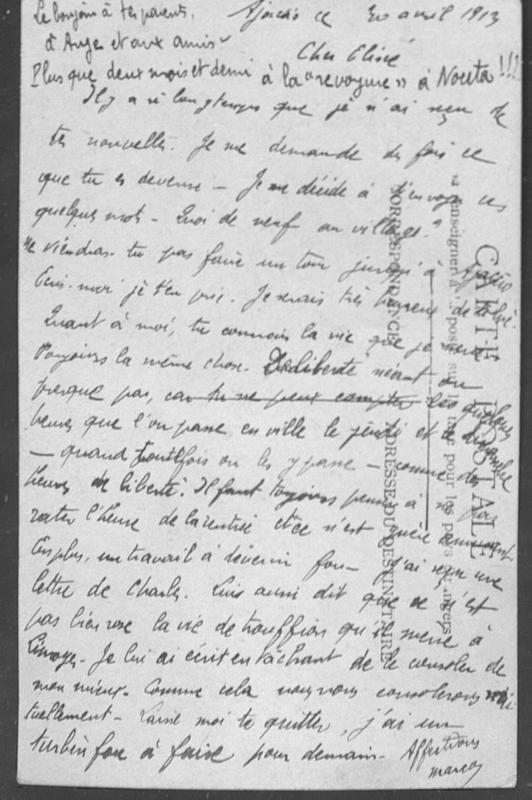 Le bonjour à tes parents,
à Ange et aux amis
Ajaccio ce 30 avril 1913
Cher Elisé
Plus que deux mois et demi à la "revoyure" à Nonta!!!
Il y a si longtemps que je n'ai reçu de
tes nouvelles. Je me demande des fois ce
que tu es devenu - Je me décide à t'envoyer ces
quelques mots - Quoi de neuf au village?
Ne viendras-tu pas faire un tour jusqu'à Ajaccio
Ecris-moi je t'en prie. Je serais très heureux de te lire.
Quant à moi, tu connais la vie que je mène
Toujours la même chose. De liberté néant ou
presque pas, car tu ne peux compter les quelques
heures que l'on passe en ville le jeudi et le dimanche
- quand toutefois on les y passe - comme des
heures de liberté. Il faut toujours penser à ne pas
rater l'heure de la rentrée et ce n'est guère amusant
En plus, un travail à devenir fou - J'ai reçu une
lettre de Charles. Lui aussi dit que ce n'est
pas bien rose la vie de trouffion qu'il mène à
Limoges. Je lui ai écrit en tâchant de le consoler de
mon mieux. Comme cela nous nous consolerons mu-
tuellement - Laisse moi te quitter, j'ai un
turbin fou à faire pour demain. Affections
CARTE POSTALE
CORRESPONDANCE
ADRESSE DU DESTINATAIRE